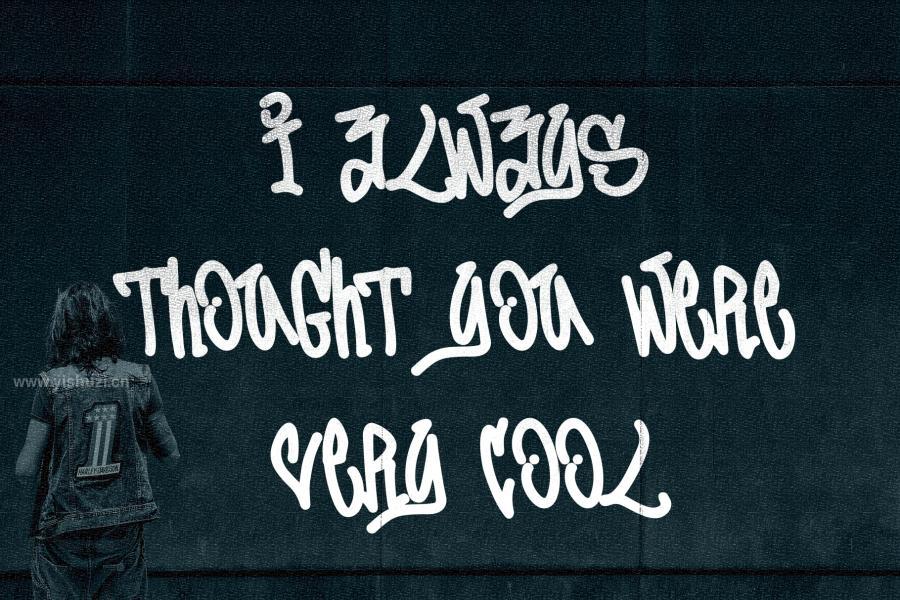 I ALWAYS
THOUGHT YOU WERE
VERY COOL
www.yishuzi.cn
1
HARLEY-DAVIDSON